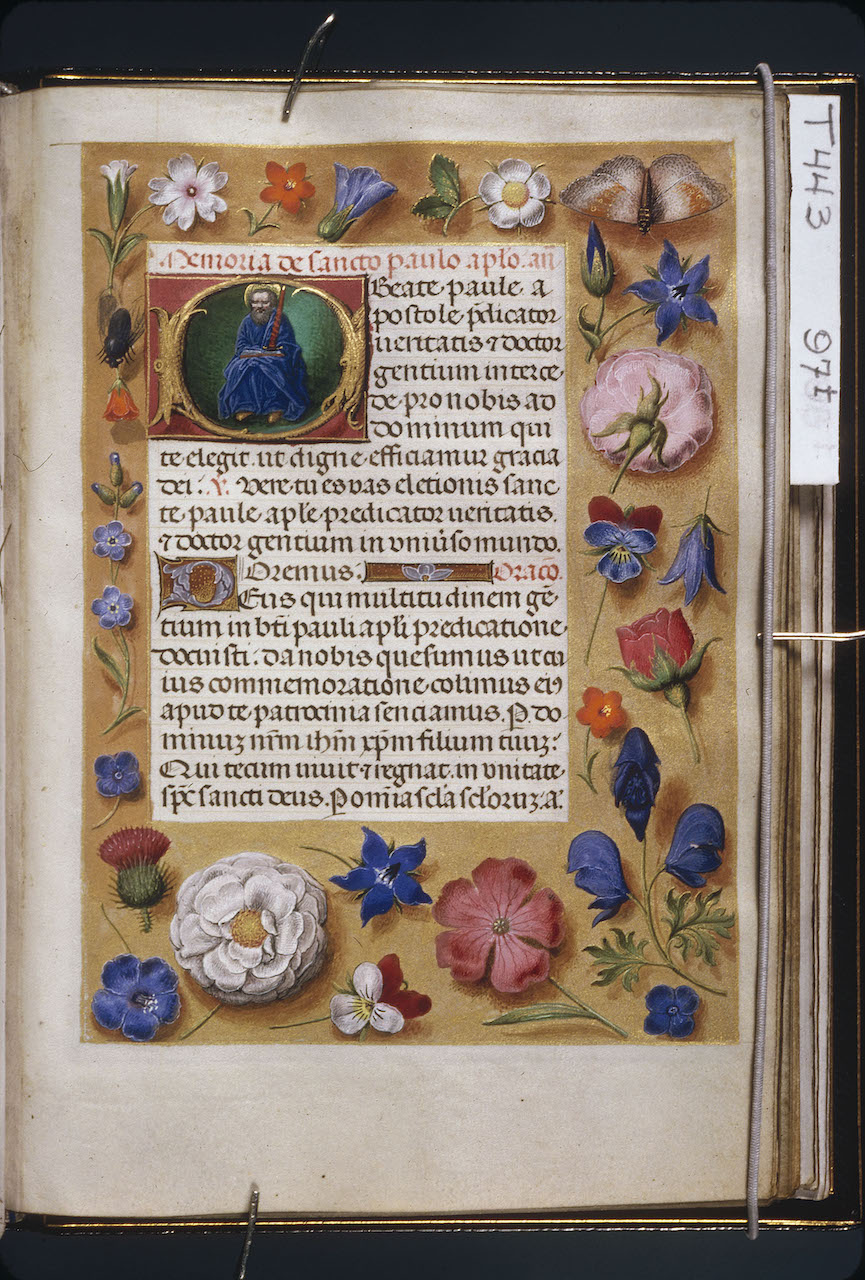 Memoria de sancto paulo aplo. an
O Beate paule a
postole p̄dicator
ueritatis ⁊ doctor
gentium interce
de pro nobis ad
dominum qui
te elegit. ut digne efficiamur gracia
dei. V. Vere tu es vas eletionis sanc
te paule apl̄e predicator ueritatis.
⁊ doctor gentium in vniu̓so mundo.
Oremus. Oracō.
Deus qui multitudinem gē
tium in bt̄i pauli apl̄i predicatione
docuisti: da nobis quesumus ut cu
ius commemoratione colimus eiꝰ
apud te patrocinia senciamus. P. do
minuꝫ nr̄m ih̄m xp̄m filium tuuꝫ:
Qui tecum uiuit ⁊ regnat. in vnitate
sp̄c sancti deus. P om̄ia scl̄a scl̄oruꝫ. a.
T443
97t